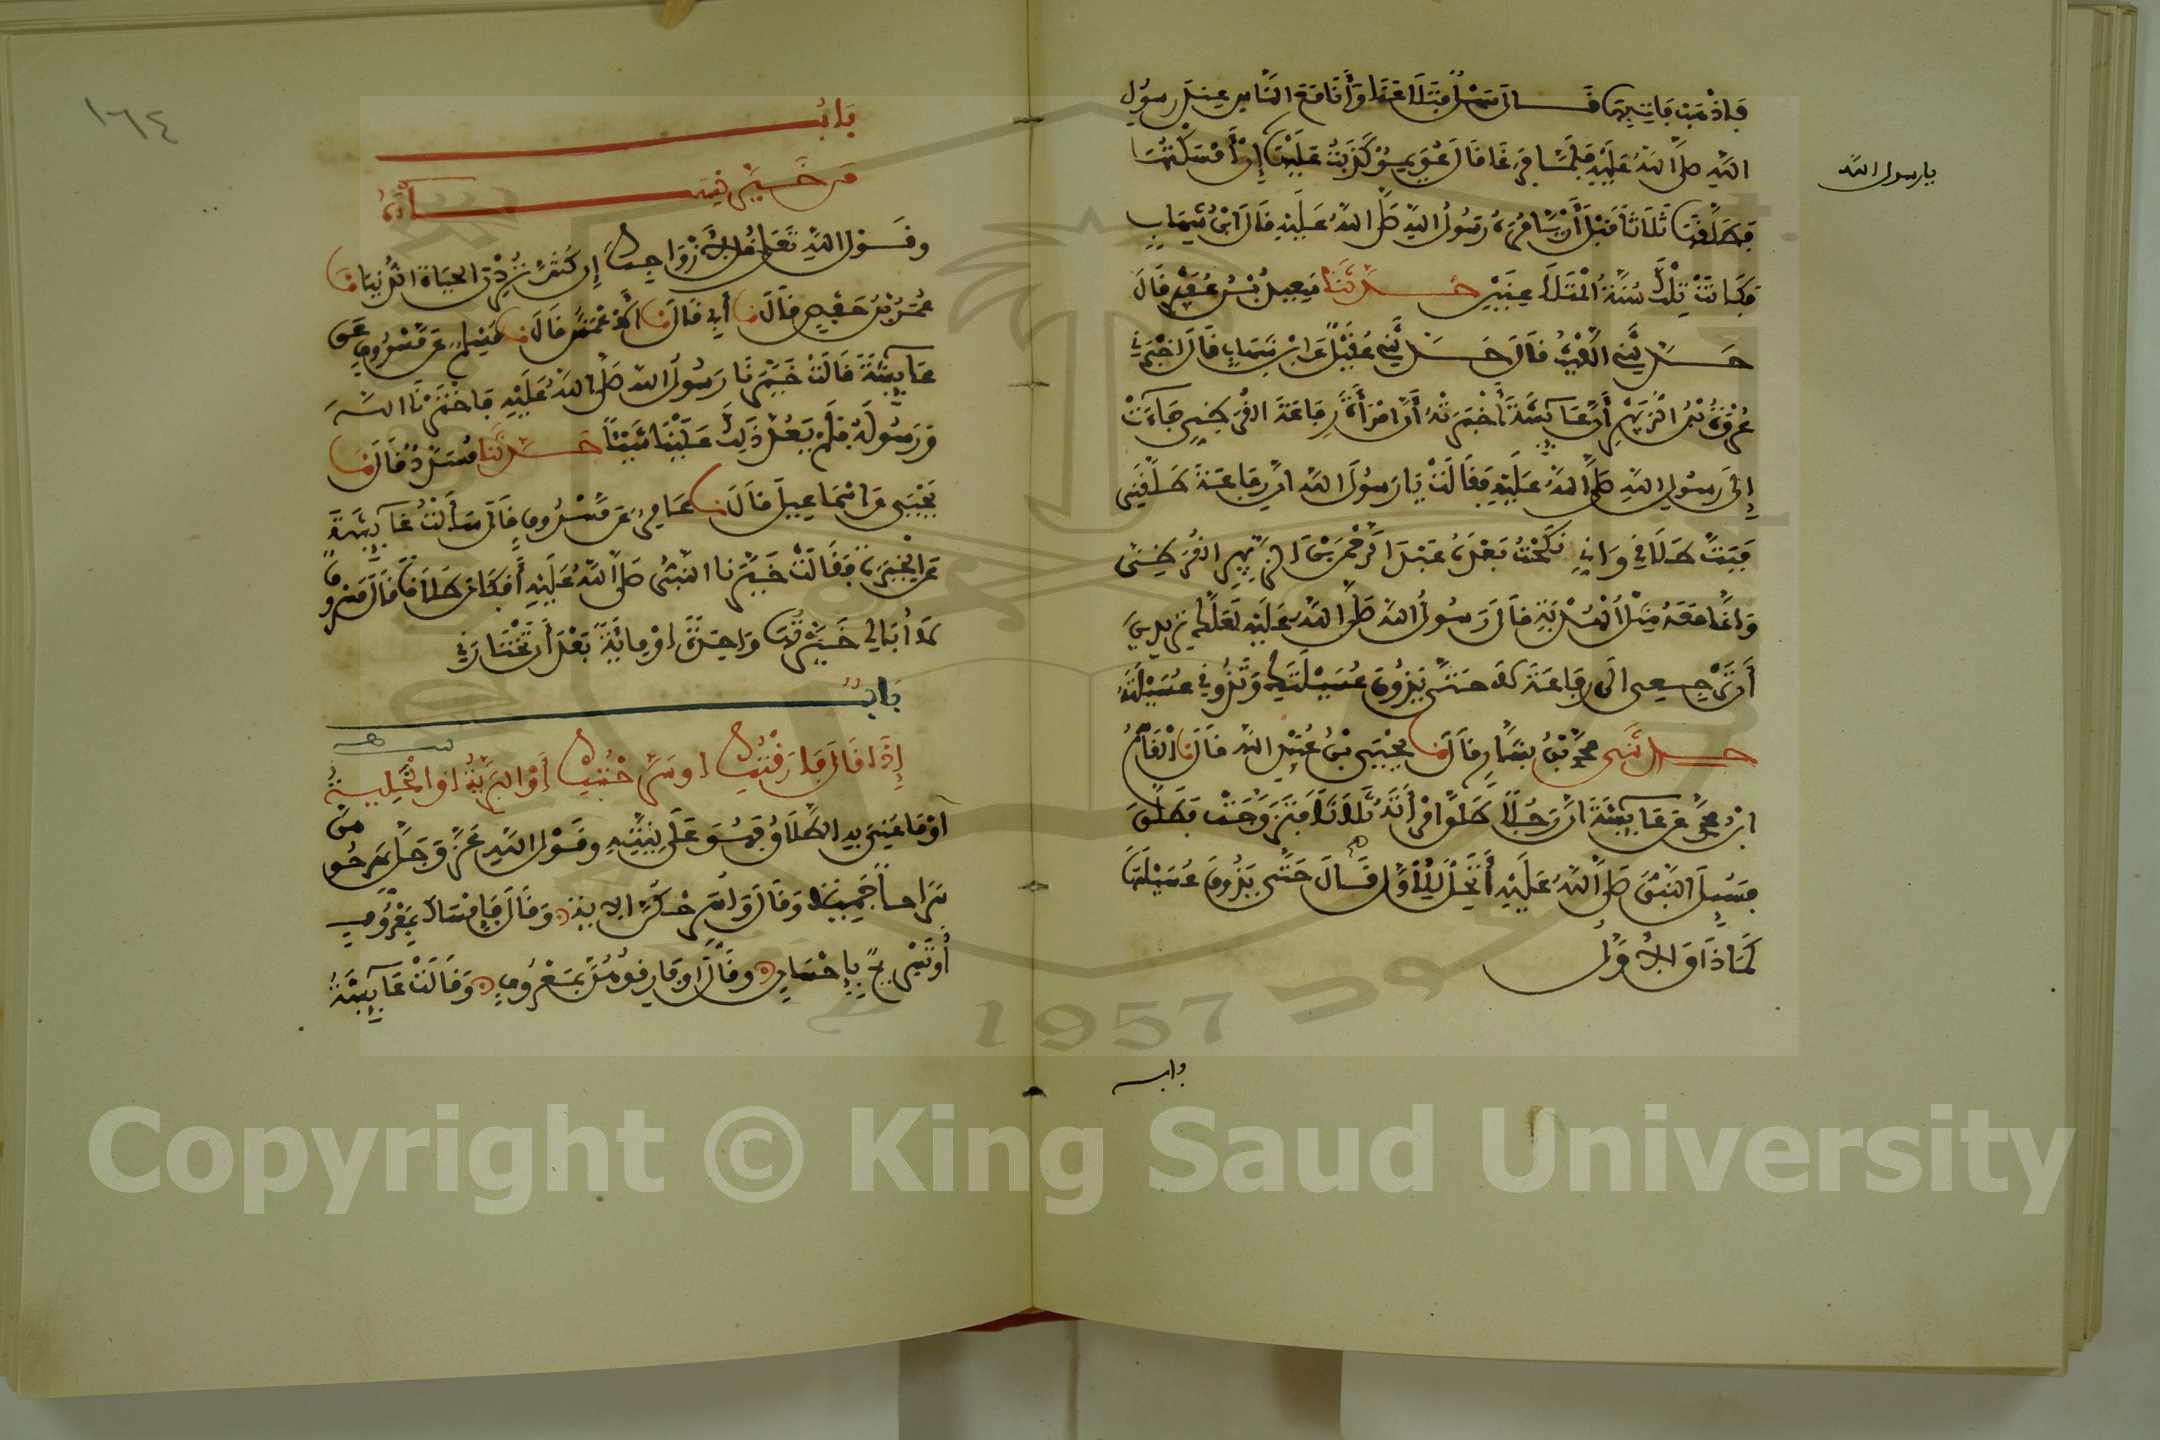 فاذهب فات بها قال سهل فتلاعنا وأنا مع الناس عند رسول
الله صلى الله عليه فلما فرغا قال عويمر كذبت عليها إن أمسكتها
يا رسول الله
فطلقها ثلاثا قبل أن يامره رسول الله صلى الله عليه قال ابن شهاب
فكانت تلك سنة المتلاعنين حدثنا سعيد بن عفير قال
حدثني الليث قال حدثني عقيل عن ابن شهاب قال أخبرني
عروة بن الزبير أن عائشة أخبرته أن امرأة رفاعة القرظي جاءت
إلى رسول الله صلى الله عليه فقالت يا رسول الله ان رفاعة طلقني
فبت طلاقي واني نكحت بعده عبد الرحمن بن الزبير القرظي
وانما معه مثل الهدبة قال رسول الله صلى الله عليه لعلك تريدين
أن ترجعي الى رفاعة لا حتى يذوق عسيلتك وتذوقي عسيلته
حدثني محمد بن بشار قال نا يحيى بن عبيد الله قال نا القاسم
ابن محمد عن عائشة ان رجلا طلق امرأته ثلاثا فتزوجت فطلق
فسئل النبي صلى الله عليه أتحل للأول قال حتى يذوق عسيلتها
كما ذاق الأول
باب
١٦٤
باب
من خير نساءه
وقول الله تعالى قل لأزواجك إن كنتن تردن الحياة الدنيا نا
عمر بن حفص قال نا أبي قال نا الأعمش قال نا مسلم عن مسروق عن
عائشة قالت خيرنا رسول الله صلى الله عليه فاخترنا الله
ورسوله فلم يعد ذلك علينا شيئا حدثنا مسدد قال نا
يحيى عن اسماعيل قال نا عامر عن مسروق قال سألت عائشة
عن الخيرة فقالت خيرنا النبي صلى الله عليه أفكان طلاقا قال مسروق
لا أبالي خيرتها واحدة او مائة بعد أن تختارني
باب
إذا قال فارقتك او سرحتك أو البرية او الخلية
أو ما عني به الطلاق فهو على نيته وقول الله عز وجل وسرحوهن
سراحا جميلا وقال وأسرحكن الاية وقال فإمساك بمعروف
أو تسريح بإحسان وقال او فارقوهن بمعروف وقالت عائشة